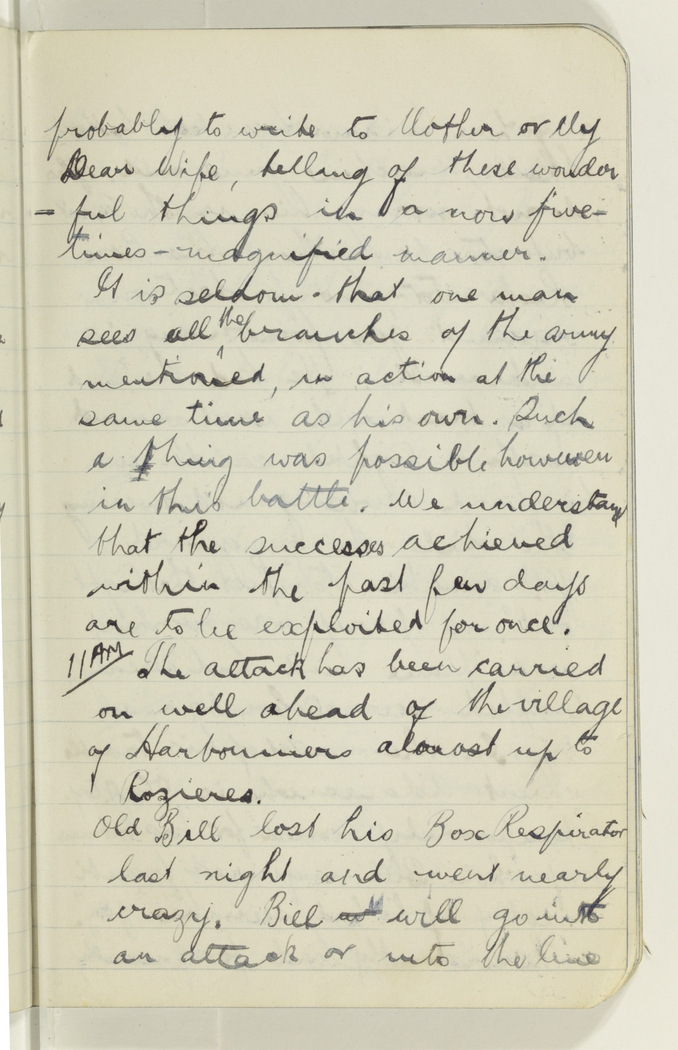 probably to write to Mother or My
Dear Wife, telling of these wonder
- ful things in a now five-
times-magnified manner.
It is seldom that one man
sees all the branches of the army
mentioned, in action at the
same time as his own. Such
a thing was possible however
in this battle. We understand
that the successes achieved
within the past few days
are to be exploited for once.
11AM The attack has been carried
on well ahead of the village
of Harbonniers almost up to
Rozieres.
Old Bill lost his Box Respirator
last night and went nearly
crazy. Bill will go into
an attack or into the line